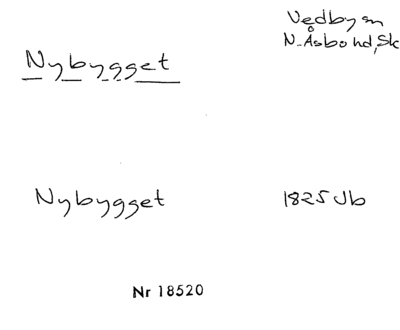 Vedby sn
N. Åsbo hd, Sk
Nybygget
Nybygget 1825 Jb
Nr 18520